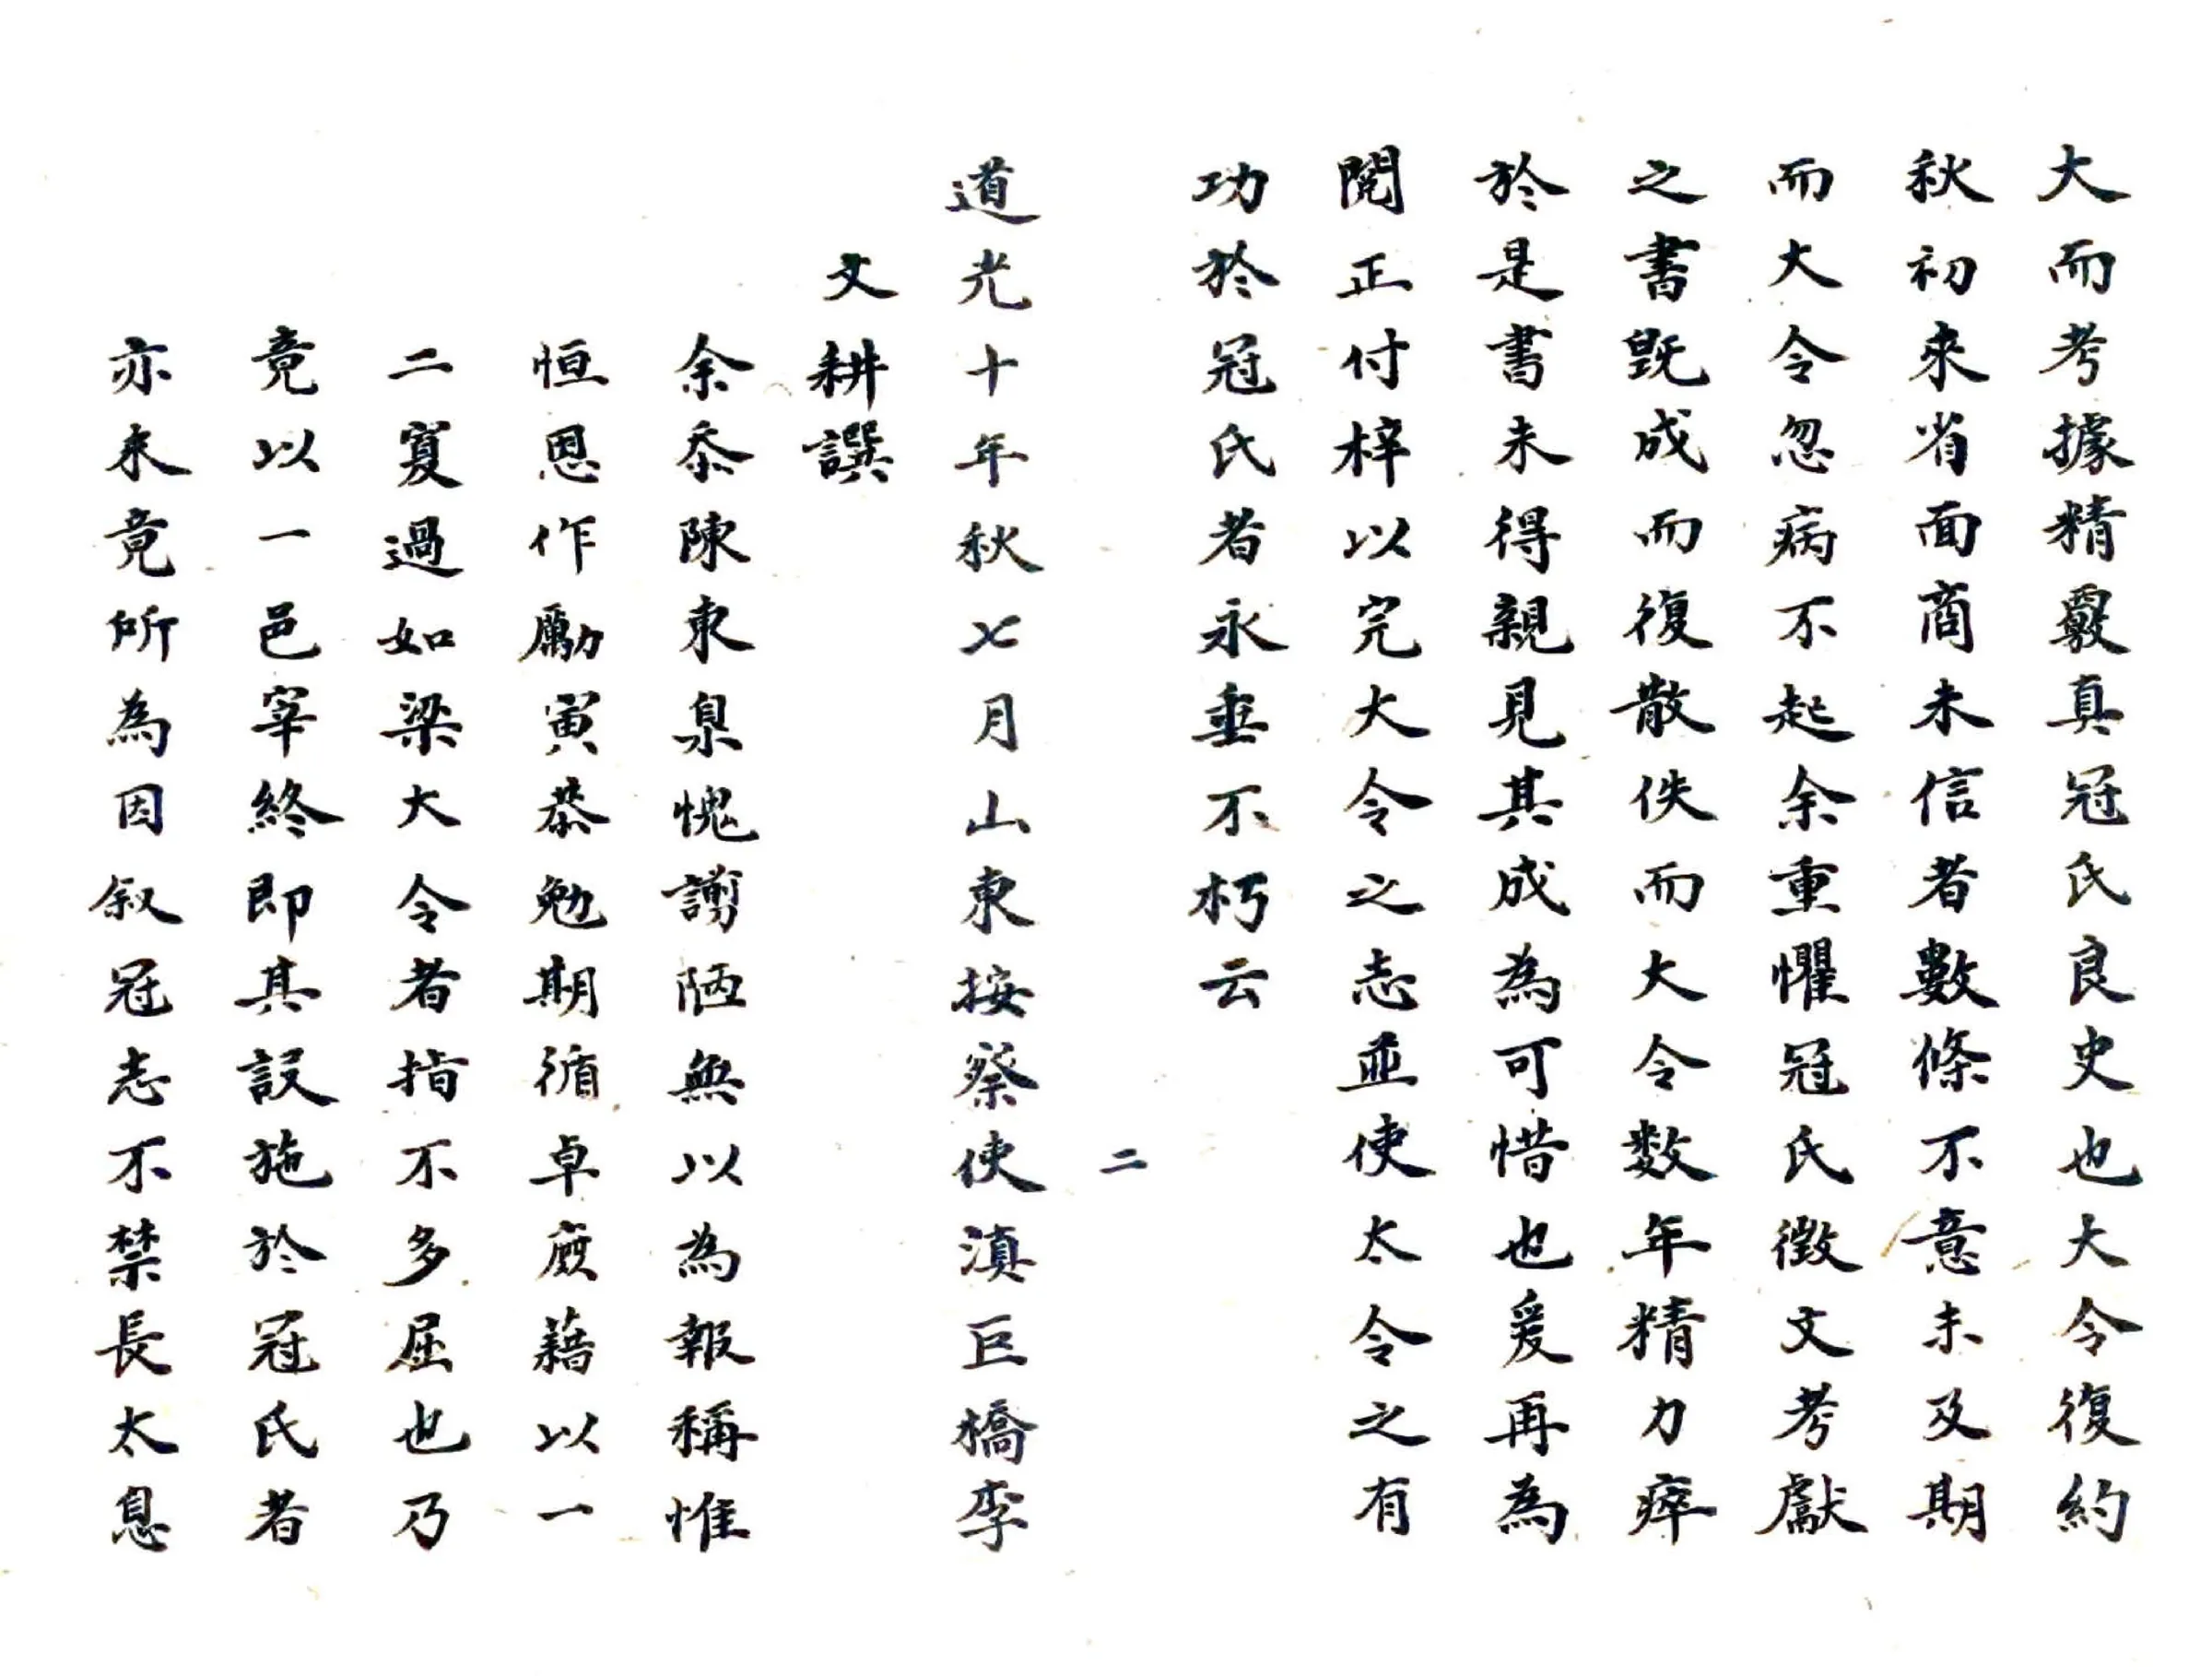 大而考據精覈真冠氏良史也大令復約
秋初來省面商未信者數條不意未及期
而大令忽病不起余重懼冠氏徵文考獻
之書既成而復散佚而大令数年精力瘁
於是書未得親見其成為可惜也爰再為
閱正付梓以完大令之志並使太令之有
功於冠氏者永垂不朽云
二
道光十年秋七月山東按察使滇巨橋李
文耕譔
余忝陳東臬愧謭陋無以為報稱惟
恒恩作勵寅恭勉期循卓廒藉以一
二寡過如梁大令者指不多屈也乃
竟以一邑宰終即其設施於冠氏者
亦未竟所為因叙冠志不禁長太息